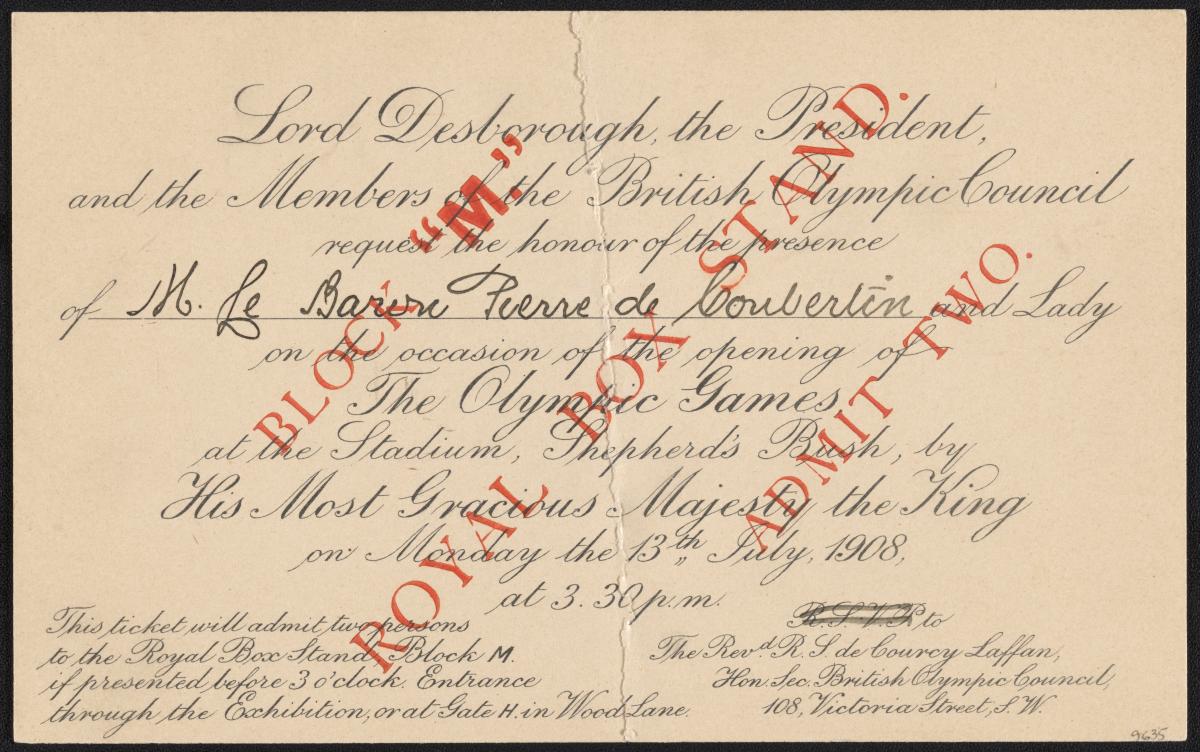 Lord Desborough, the President,
and the Members of the British Olympic Council
request the honour of the presence
of M. Le Baron Pierre de Coubertin and Lady
on the occasion of the opening of
The Olympic Games
at the Stadium, Shepherd's Bush, by
His Most Gracious Majesty the King
on Monday the 13th July, 1908,
at 3.30 p.m.
This ticket will admit two persons
to the Royal Box Stand, Block M.
if presented before 3 o'clock. Entrance
through the Exhibition, or at Gate H. in Wood Lane.
R.S.V.P. to
The Revd. R. S. de Courcy Laffan,
Hon. Sec. British Olympic Council,
108, Victoria Street, S.W.
BLOCK "M."
ROYAL BOX STAND.
ADMIT TWO.
9635